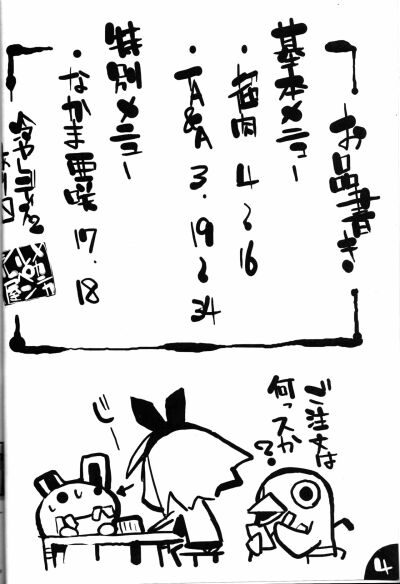 お品書き。
基本メニュー
・ 4〜16
・TA&A 3.19〜34
特別メニュー
・なかま亜咲 17.18
ご注文は
何っスか?
じーっ
4